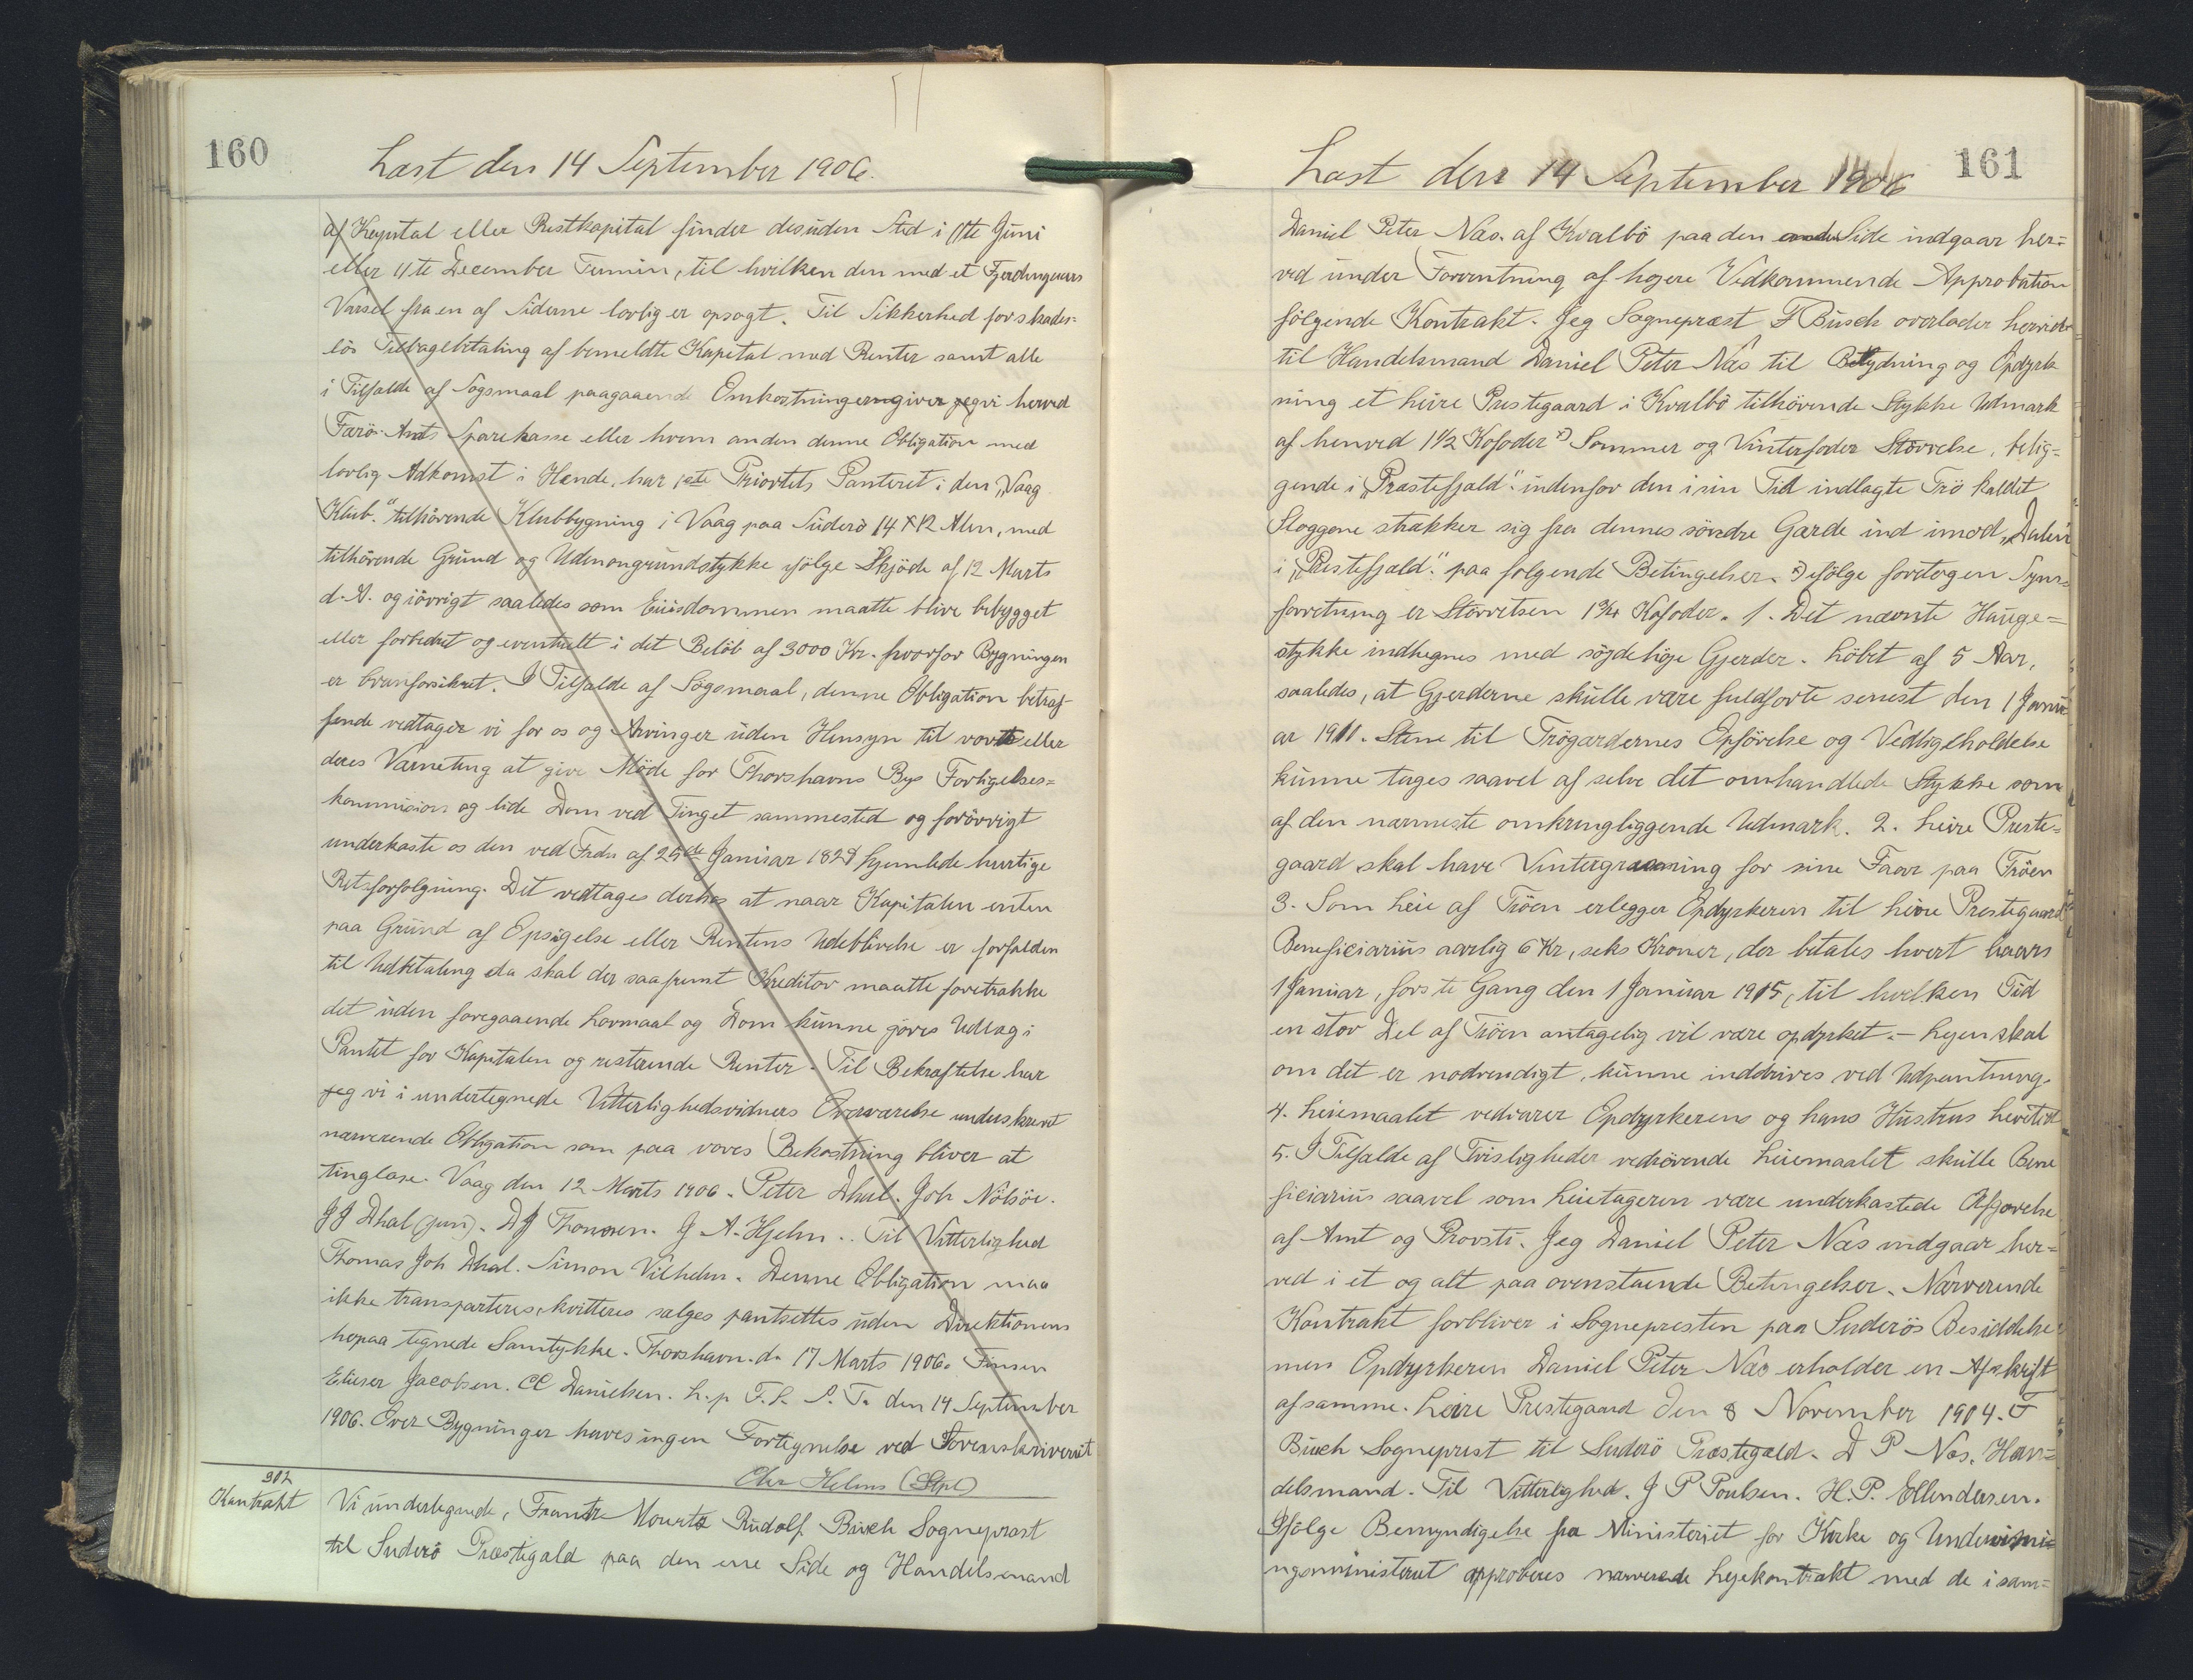 160
Læst den 14 September 1906.
af Kapital eller Restkapital finder desuden Sted i 11te Juni
eller 11te December Termin, til hvilken den med et Fjerdingaars
Varsel fra en af Siderne lovlig er opsagt. Til Sikkerhed for skades=
lös Tilbagebetaling af bemeldte Kapital med Renter samt alle
i Tilfælde af Sögsmaal paagaaende Omkostninger giver jeg vi herved
Færö Amts Sparekasse eller hvem anden denne Obligation med
lovlig Adkomst i Hænde, har 1ste Prioritets Panteret i den „Vaag
Klub." tilhörende Klubbygning i Vaag paa Suderö 14 X 12 Alen, med
tilhörende Grund og Udmarksgrundstykke ifölge Skjöde af 12 Marts
d. A. og iövrigt saaledes som Eiendommen maatte blive bebygget
eller forbedret og eventuelt i det Belöb af 3000 Kr. hvorfor Bygningen
er brandforsikret. I Tilfælde af Sögsmaal, denne Obligation betræf-
fende vedtager vi for os og Arvinger uden Hensyn til vort eller
deres Værneting at give Möde for Thorshavns Bys Forligelses=
kommission og lide Dom ved Tinget sammested og forövrigt
underkaste os den ved Frdn af 25de Januar 1828 hjemlede hurtige
Retsforfölgning. Det vedtages derhos at naar Kapitalen enten
paa Grund af Opsigelse eller Rentens Udeblivelse er forfalden
til Udbetaling da skal der saafremt Kreditor maatte foretrække
det uden foregaaende Lovmaal og Dom kunne göres Udlæg i
Pantet for Kapitalen og resterende Renter. Til Bekræftelse har
jeg vi i undertegnede Vitterlighedsvidners Overværelse underskrevet
nærværende Obligation som paa vores Bekostning bliver at
tinglæse. Vaag den 12 Marts 1906. Peter Dhal. Joh Nölsöe.
J J Dhal (jun). D J Thomsen. J A. Hjelm.. Til Vitterlighed
Thomas Joh Dhal. Simon Vilhelm. Denne Obligation maa
ikke transporteres, kvitteres sælges pantsettes uden Direktionens
herpaa tegnede Samtykke. Thorshavn. d. 17 Marts 1906. Finsen
Elieser Jacobsen. CC Danielsen. L. p F. S. S. T. den 14 September
1906. Over Bygninger haves ingen Fortegnelse ved Sorenskriveriet
Chr Helms (Stpl)
302
Kontrakt
Vi undertegnede, Frantz Mourtz Rudolf Busch Sognepræst
til Suderö Præstegjæld paa den ene Side og Handelsmand
161
Læst den 14 September 1906
Daniel Peter Næs. af Kvalbö paa den anden Side indgaar her=
ved under Forventning af höjere Vedkommende Approbation
fölgende Kontrakt. Jeg Sognepræst F Busch overlader herved
til Handelsmand Daniel Peter Næs til Betydning og Opdyrk
ning et heire Prestegaard i Kvalbö tilhörende Stykke Udmark
af henved 1 1/2 Kofoder x) Sommer og Vinterfoder Störrelse, belig=
gende i „Præstefjæld". indenfor den i sin Tid indlagte Trö kaldet
Sloggene strækker sig fra dennes söndre Gærde ind imod „Dalen
i „Prestefjæld". paa fölgende Betingelser. x) ifölge foretagen Syns=
forretning er Störrelsen 1 3/4 Kofoder. 1. Det nævnte Hauge=
stykke indhegnes med söjdelige Gjerder. Löbet af 5 Aar,
saaledes, at Gjerderne skulle være fuldförte senest den 1 Janu
ar 1911. Stene til Trögærdernes Opförelse og Vedligeholdelse
kunne tages saavel af selve det omhandlede Stykke som
af den nærmeste omkringliggende Udmark. 2. heire Preste=
gaard skal have Vintergræsning for sine Faar paa Tröen
3. Som heie af Tröen erlegger Opdyrkeren til heire Prestegaard
Beneficiarius aarlig 6 Kr, seks Kroner, der betales hvert Aars
1 Januar, förste Gang den 1 Januar 1915, til hvilken Tid
en stor Del af Tröen antagelig vil være opdyrket. – Lejen skal
om det er nödvendigt, kunne inddrives ved Udpantning.
4. Leiemaalet vedvarer Opdyrkerens og hans Hustrus Levetid
5. I Tilfælde af Tvistigheder vedrörende Leiemaalet skulle Bene
ficiarius saavel som Leietageren være underkastede Afgjörelse
af Amt og Provsti. Jeg Daniel Peter Næs indgaar her=
ved i et og alt paa ovenstaaende Betingelser. Nærværende
Kontrakt forbliver i Sognepresten paa Suderös Besiddelse
men Opdyrkeren Daniel Peter Næs erholder en Afskrift
af samme. heire Prestegaard den 8 November 1904. F
Busch Sogneprest til Suderö Præstegæld. D P Næs. Han=
delsmand. Til Vitterlighed. J P Poulsen. H. P. Ellendersen.
Ifölge Bemyndigelse fra Ministeriet for Kirke og Undervisni=
ngsministeriet approberes nærværende Lejekontrakt med de i sam=